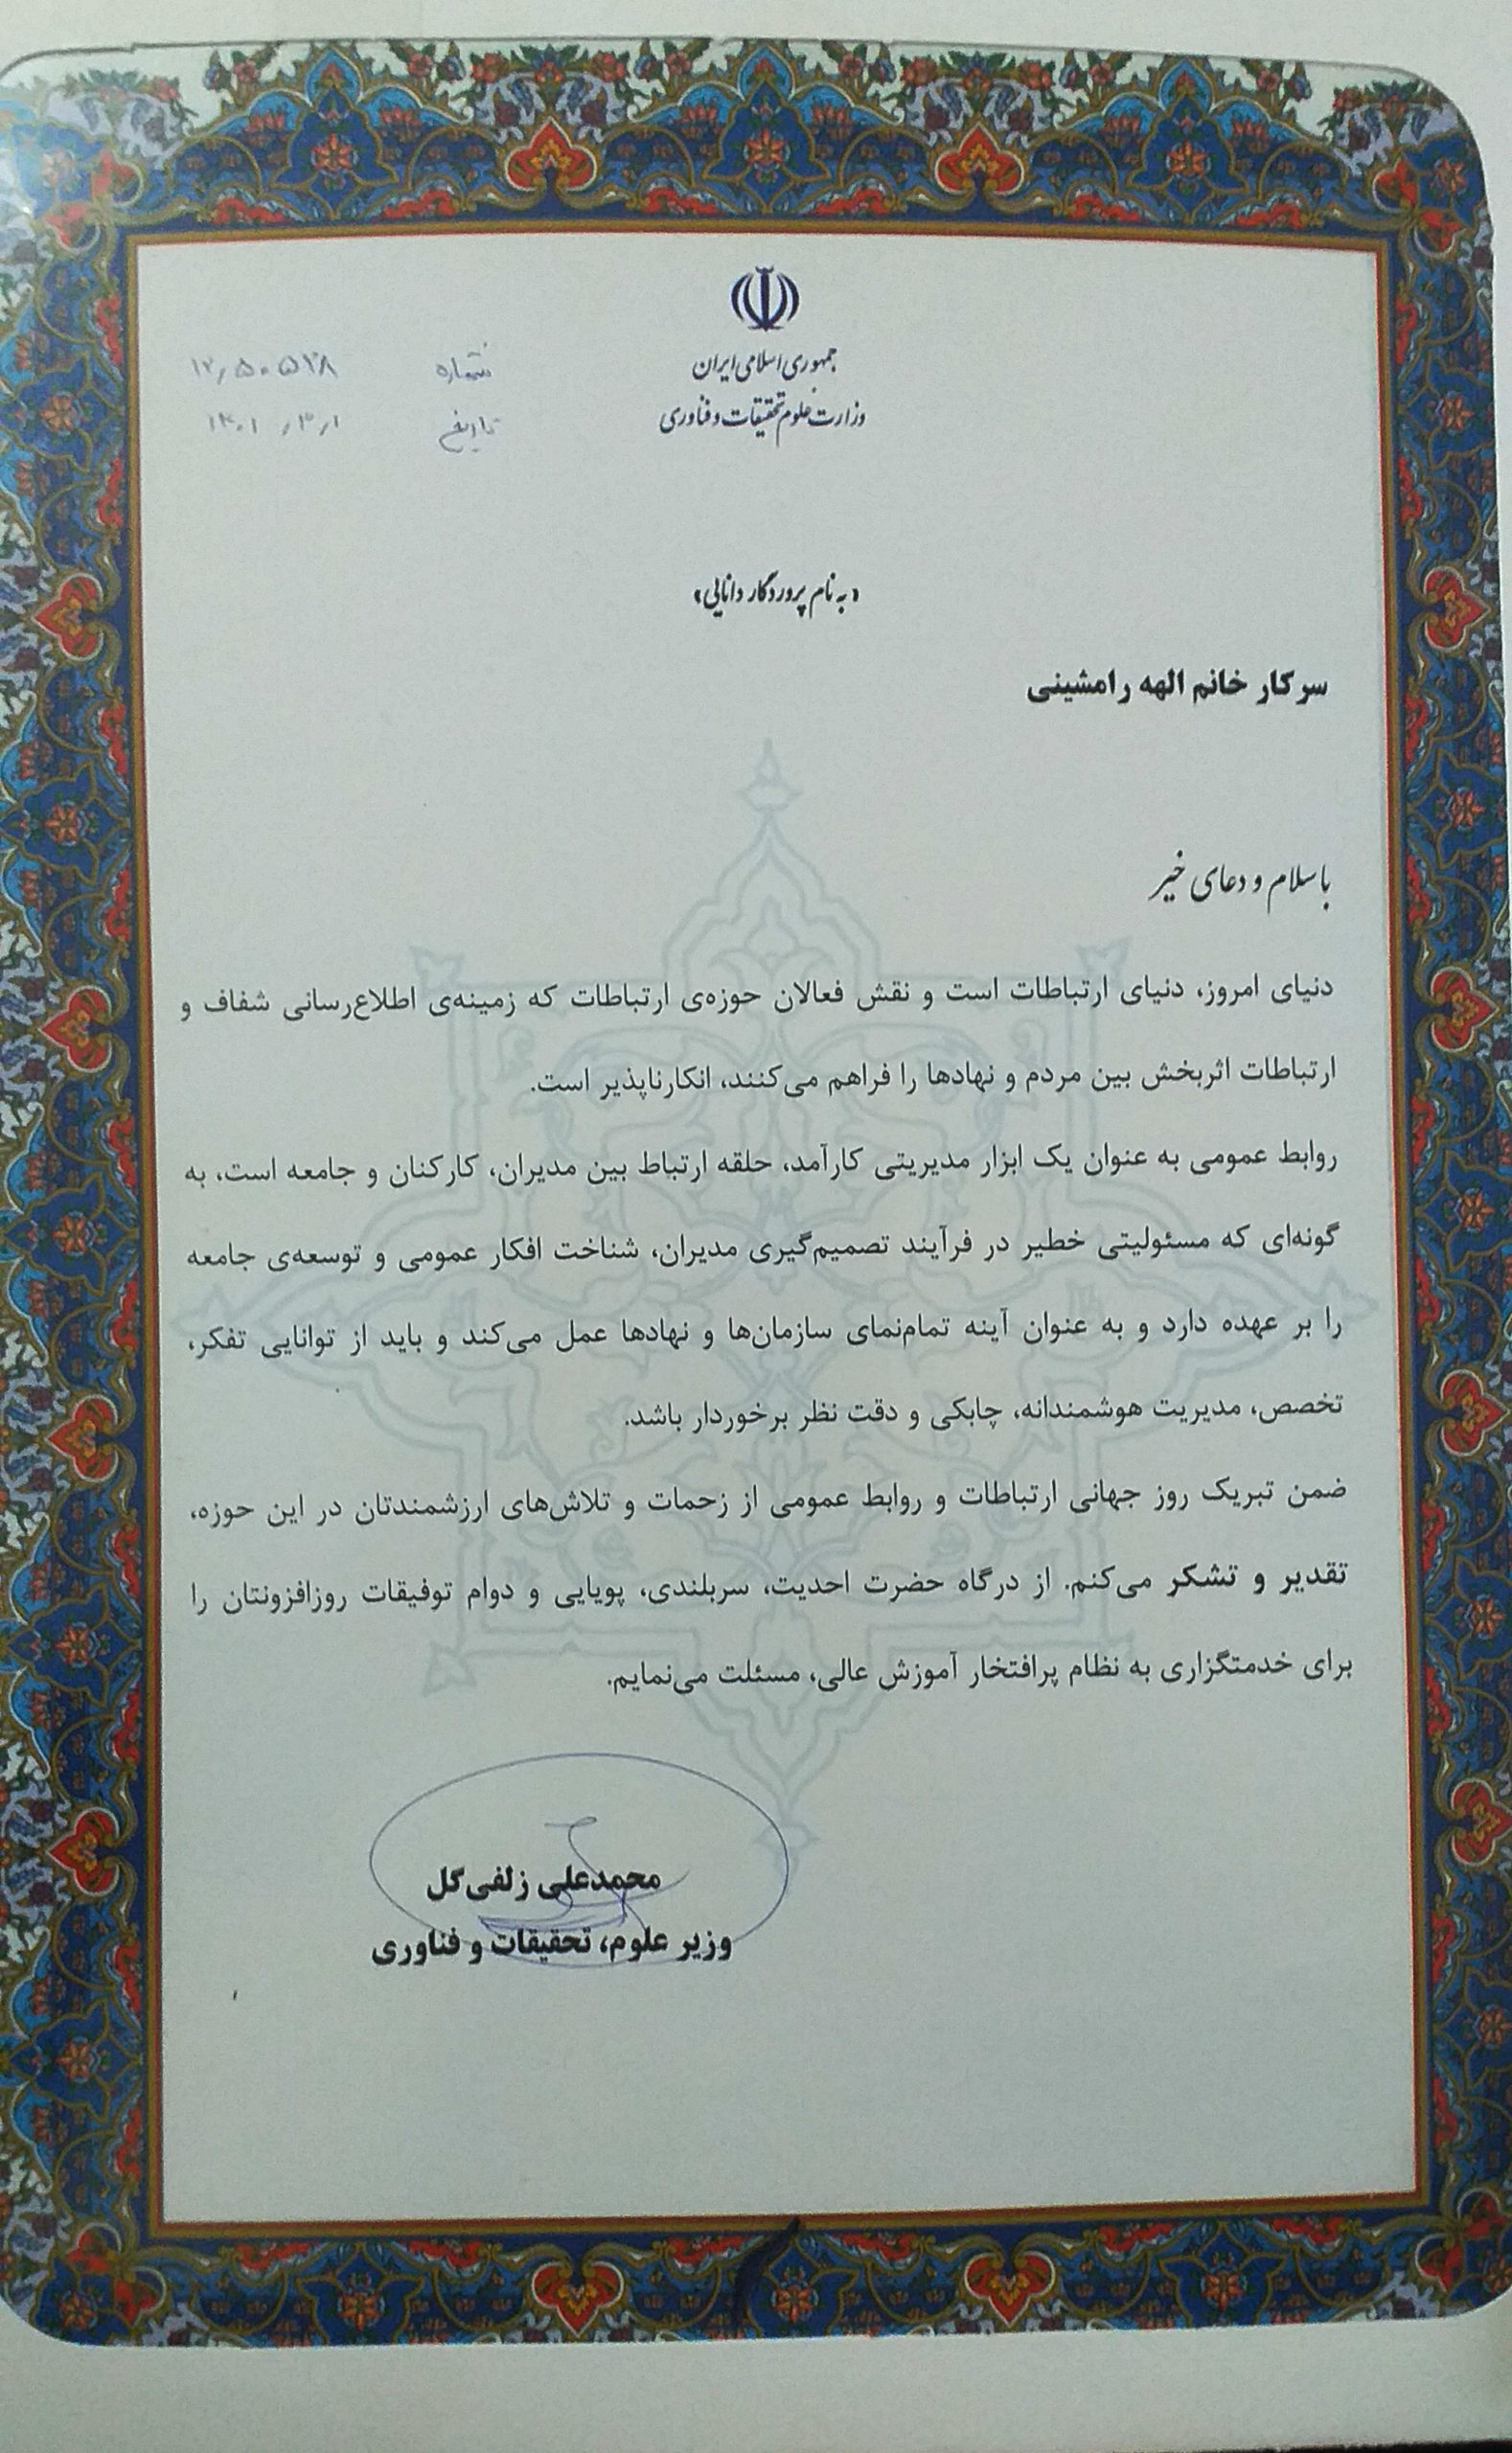 جمهوری اسلامی ایران
وزارت علوم تحقیقات و فناوری
شماره
تاریخ ۱۴۰۱/۳/۱
«به نام پروردگار دانایی»
سرکار خانم الهه رامشینی
با سلام و دعای خیر
دنیای امروز، دنیای ارتباطات است و نقش فعالان حوزه‌ی ارتباطات که زمینه‌ی اطلاع‌رسانی شفاف و
ارتباطات اثربخش بین مردم و نهادها را فراهم می‌کنند، انکارناپذیر است.
روابط عمومی به عنوان یک ابزار مدیریتی کارآمد، حلقه ارتباط بین مدیران، کارکنان و جامعه است، به
گونه‌ای که مسئولیتی خطیر در فرآیند تصمیم‌گیری مدیران، شناخت افکار عمومی و توسعه‌ی جامعه
را بر عهده دارد و به عنوان آینه تمام‌نمای سازمان‌ها و نهادها عمل می‌کند و باید از توانایی تفکر،
تخصص، مدیریت هوشمندانه، چابکی و دقت نظر برخوردار باشد.
ضمن تبریک روز جهانی ارتباطات و روابط عمومی از زحمات و تلاش‌های ارزشمندتان در این حوزه،
تقدیر و تشکر می‌کنم. از درگاه حضرت احدیت، سربلندی، پویایی و دوام توفیقات روزافزونتان را
برای خدمتگزاری به نظام پرافتخار آموزش عالی، مسئلت می‌نمایم.
محمدعلی زلفی‌گل
وزیر علوم، تحقیقات و فناوری